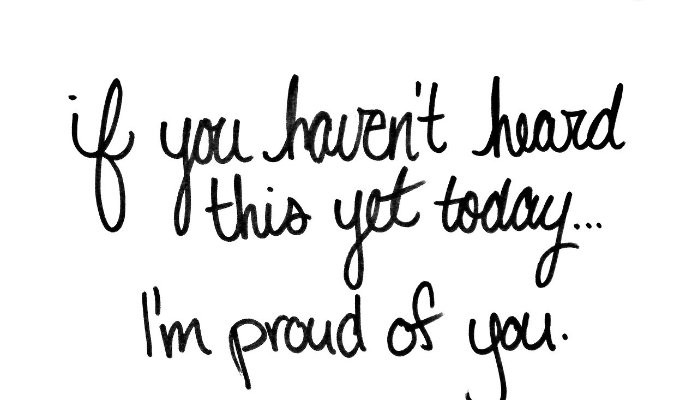 if you haven't heard
this yet today...
I'm proud of you.